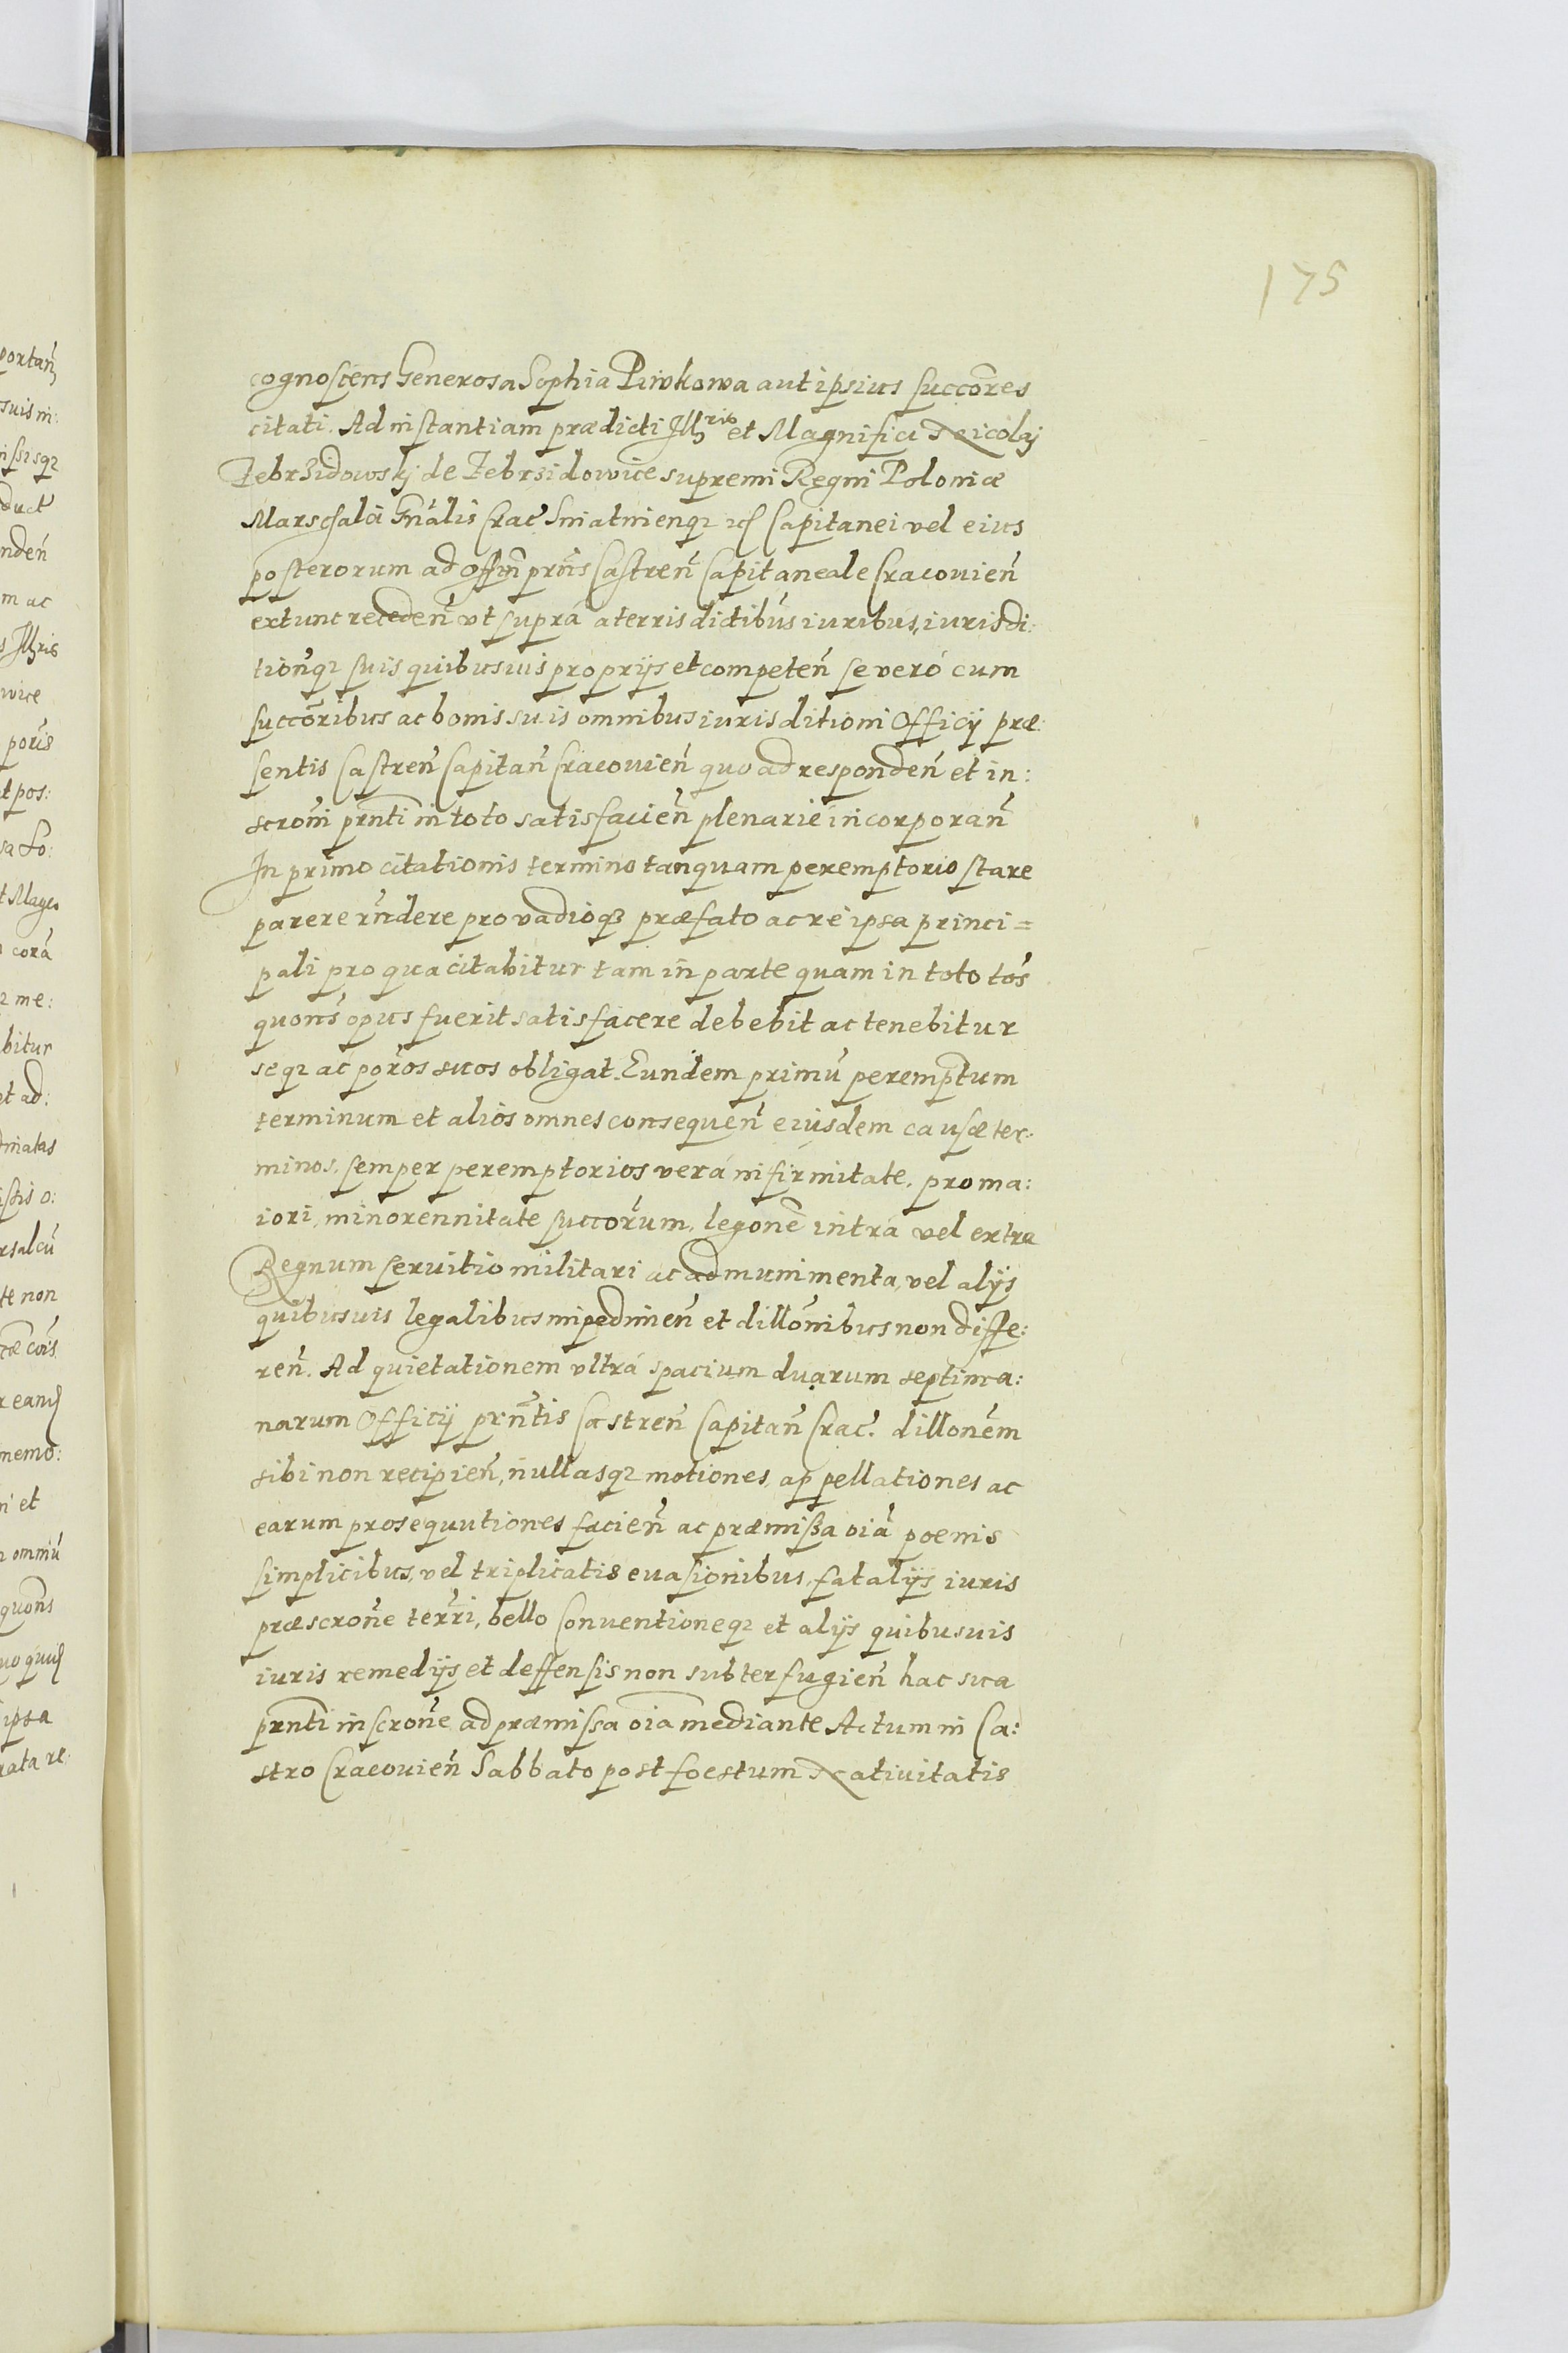 175
cognoscens Generosa Sophia Piwkowa aut ipsius succōres
citati. Ad instantiam prædicti Illris et Magnifici Nicolaj
Zebrzidowskj de Zebrzidowice supremi Regni Poloniæ
Marschalci Gnális Crac̃ Sniatnienq3 Capitanei vel eius
posterorum ad Offm̃ prñs Castreñ Capitaneale Cracouieñ
extunc recedeñ vt suprá a terris dictibús iuribus, iurisdi:
tionq3 suis quibusuis proprijs et competeñ se veró cum
succōribus ac bonis suis omnibus iurisditioni Officij præ:
sentis Castreñ Capitañ Cracouieñ quo ad respondeñ et in:
scrōni prñti in toto satisfacieñ plenarié incorporañ
In primo citationis termino tanquam peremptorio stare
parere rñdere pro vadioq3 præfato ac ré ipsa princi=
pali pro qua citabitur tam in parte quam in toto tós
quoñs opus fuerit satisfacere debebit ac tenebitur
seq3 ac por̃os suos obligat. Eundem primũ peremptum
terminum et aliós omnes consequeñ eiúsdem causæ ter:
minos, semper peremptorios verá infirmitate, pro ma:
iori, minorennitate succõrum, legonẽ intrá vel extra
Regnum seruitio militari ac ad munimenta, vel alijs
quibusuis legalibus impedimeñ et dillõnibus non diffe:
reñ. Ad quietationem vltrá spacium duarum septima:
narum Officij prñtis Castreñ Capitañ Crac̃. dillonẽm
sibi non recipieñ, nullasq3 motiones, appellationes ac
earum prosequutiones facieñ ac præmissa oiã poenis
simplicibus, vel triplicatis euasionibus, fatalijs iuris
præscroñe terr̃i, bello Conuentioneq3 et alijs quibusuis
iuris remedijs et deffensis non subterfugieñ hac sua
prñti inscroñe ad præmissa oiã mediante Actum in Ca:
stro Cracouieñ Sabbato post foestum Natiuitatis